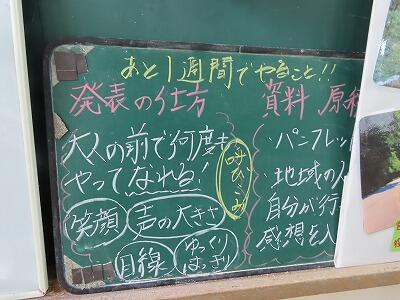 あと1週間でやること!!
発表の仕方
大人の前で何度も
やってなれる!
呼びこみ
笑顔 声の大きさ
目線 ゆっくり
はっきり
資料 原稿
・パンフレッ
・地域の人
自分が行
感想を入